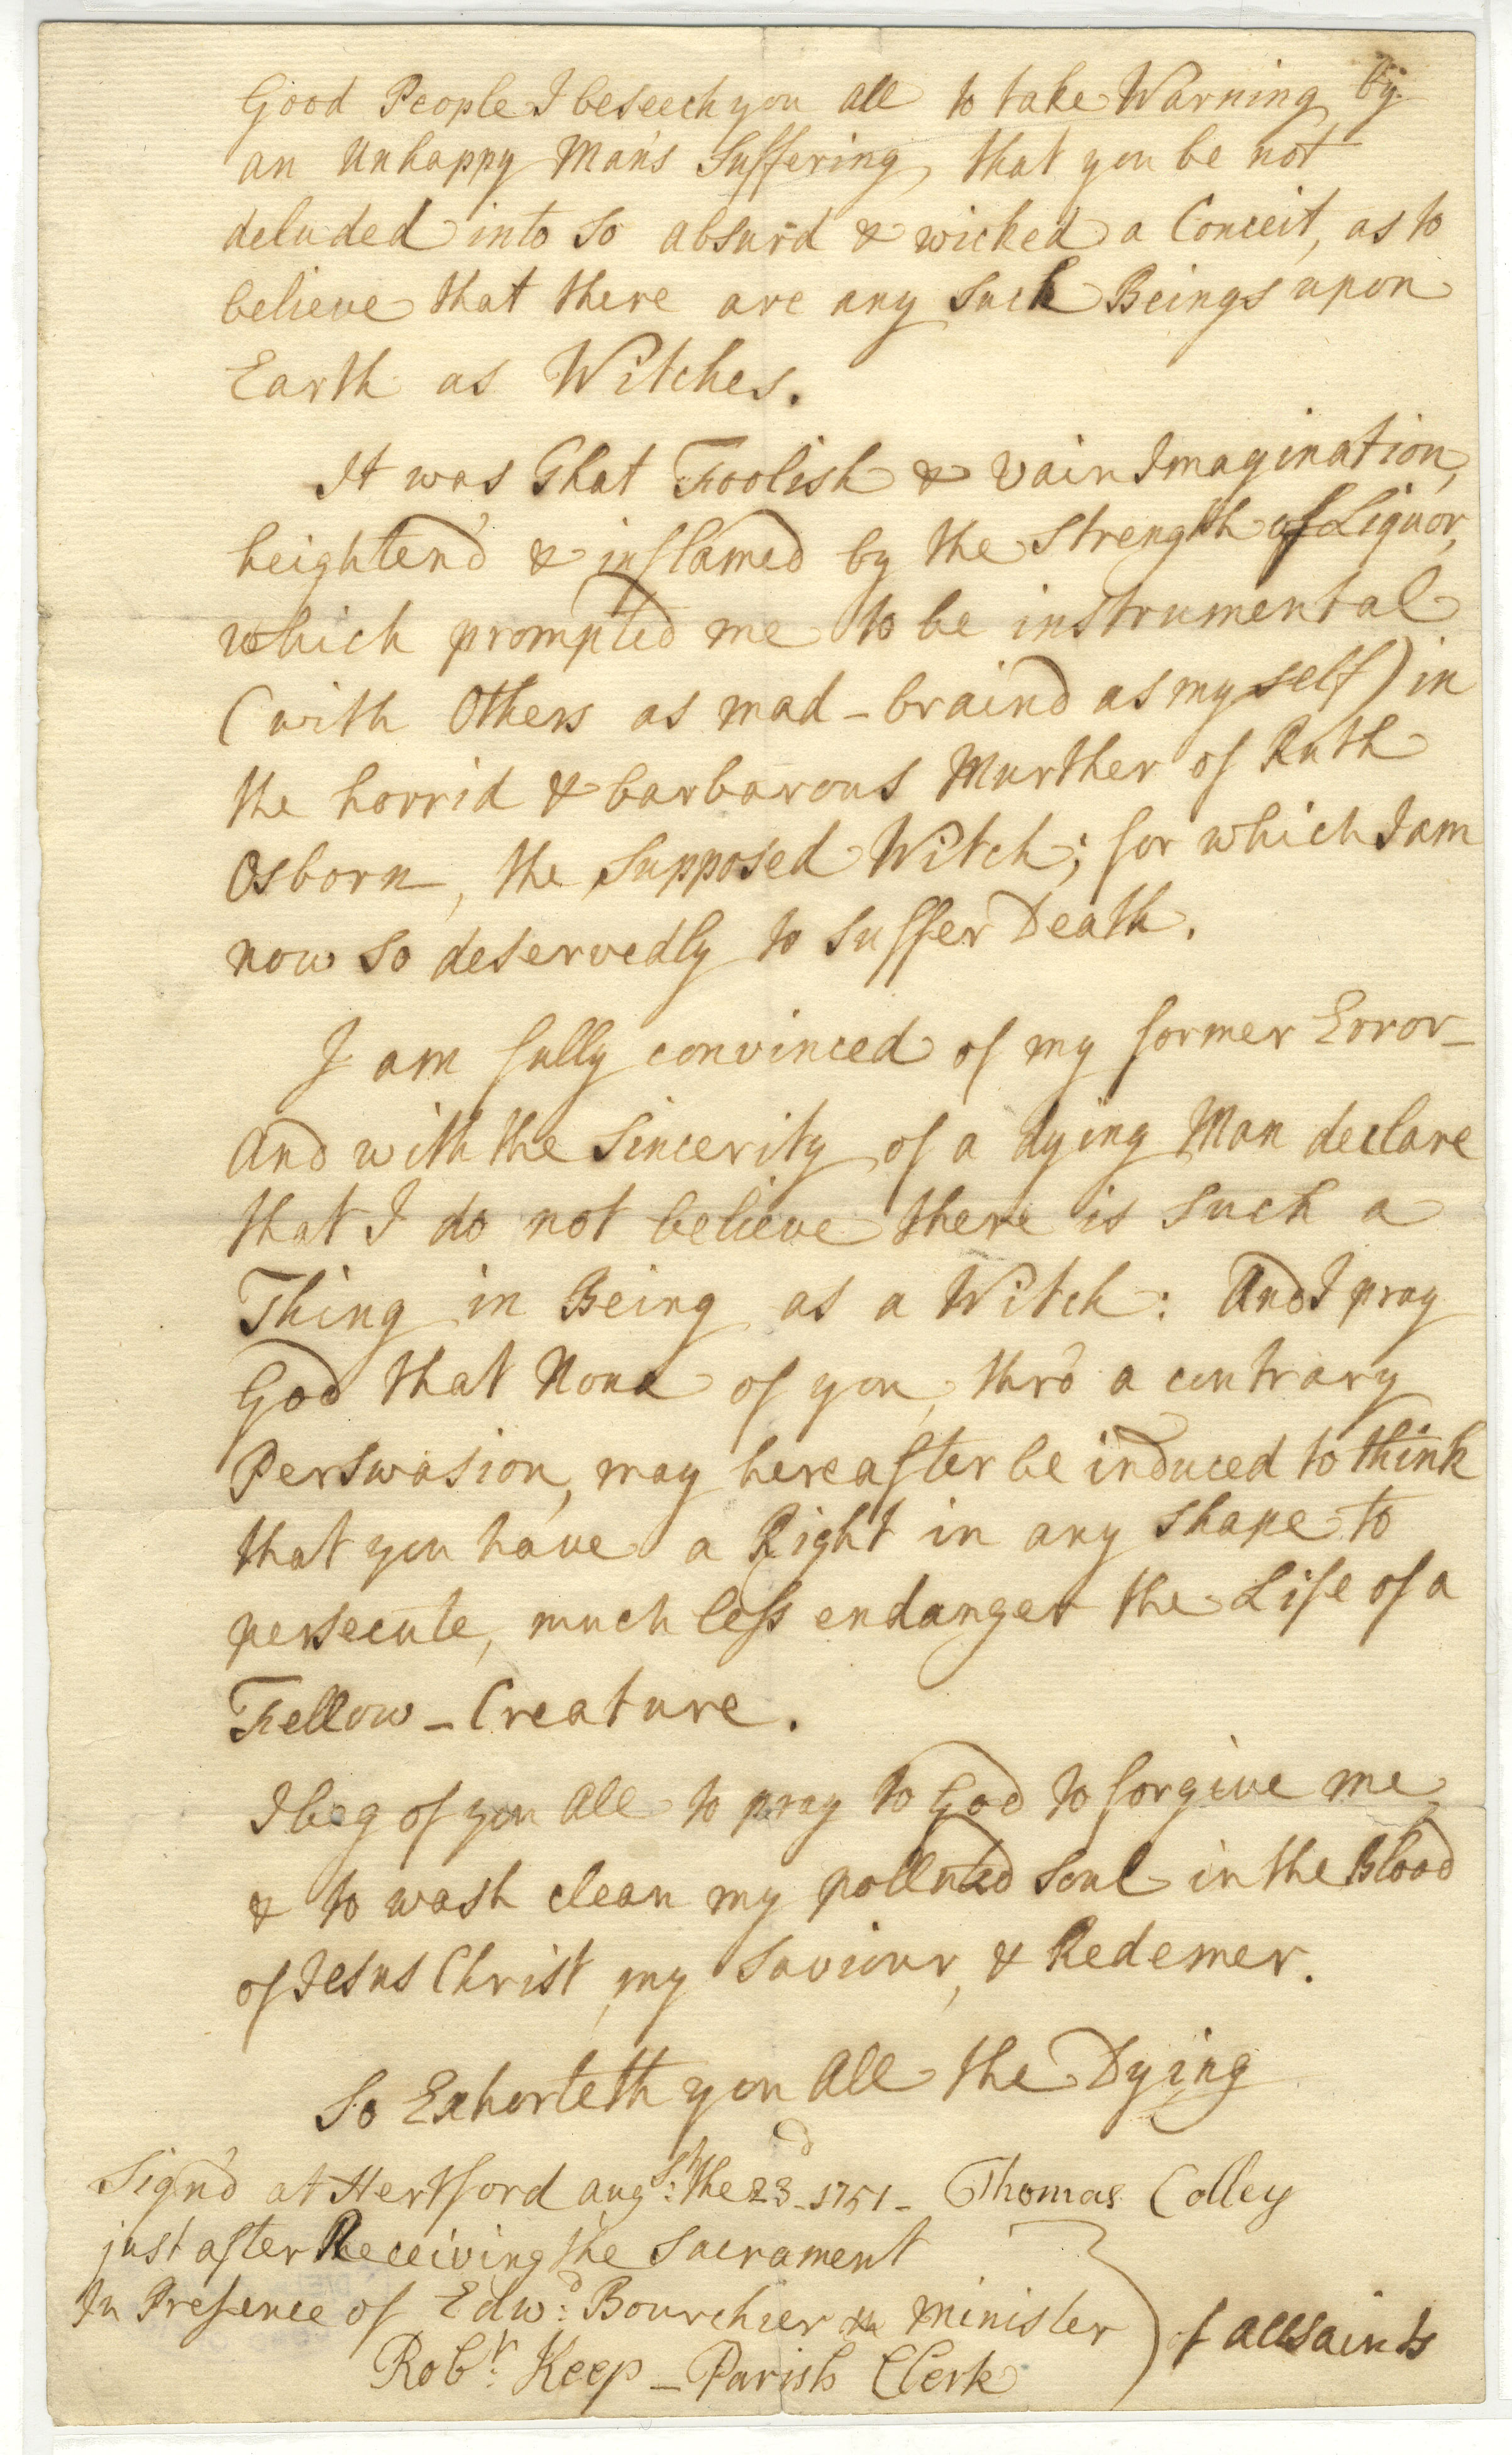 Good People I beseech you all to take Warning by
an Unhappy Man's Suffering, that you be not
deluded into so absurd & wicked a Conceit, as to
believe that there are any such Beings upon
Earth as Witches.
It was that Foolish & vain Imagination,
heighten'd & inflamed by the strength of Liquor,
which prompted me to be instrumental
(with Others as mad-braind as my self) in
the horrid & barbarous Murther of Ruth
Osborn, the supposed Witch; for which I am
now so deservedly to suffer Death.
I am fully convinced of my former Error
And with the Sincerity of a dying Man declare
that I do not believe there is such a
Thing in Being as a Witch: And I pray
God that None of you, thro' a contrary
Perswasion, may hereafter be induced to think
that you have a Right in any shape to
persecute, much less endanger the Life of a
Fellow-Creature.
I beg of you All to pray to God to forgive me,
& to wash clean my polluted Soul in the Blood
of Jesus Christ, my Saviour, & Redemer.
So Exhorteth you All the Dying
Sign'd at Hertford Augst: the 23d 1751 - Thomas Colley
just after Receiving the Sacrament
In Presence of Edwd: Bourchier Minister
of All Saints
Robt: Keep - Parish Clerk